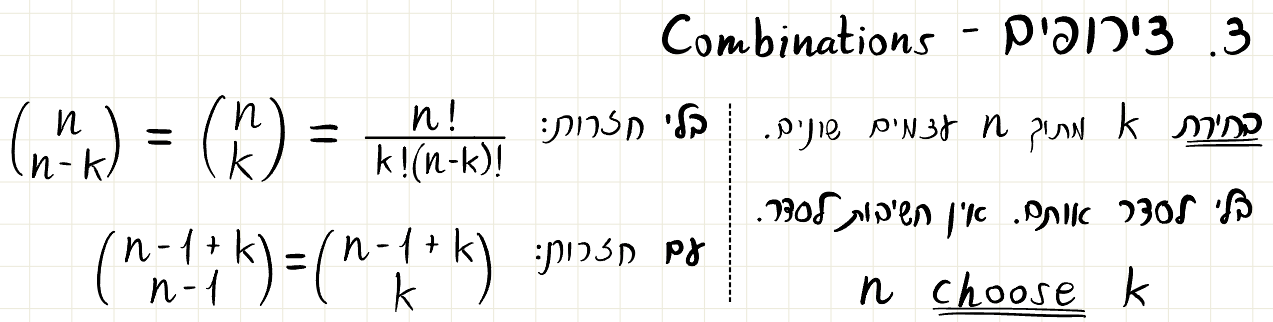 3. צירופים - Combinations
בחירת k מתוך n עצמים שונים.
בלי לסדר אותם. אין חשיבות לסדר.
n choose k
בלי חזרות: \binom{n}{n-k} = \binom{n}{k} = \frac{n!}{k!(n-k)!}
עם חזרות: \binom{n-1+k}{n-1} = \binom{n-1+k}{k}